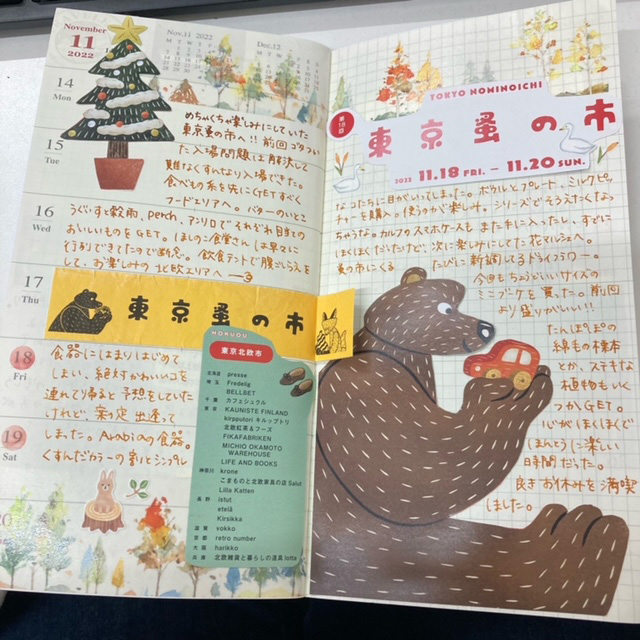 November
11
2022
Nov.11 2022
Dec.12
14
Mon
15
Tue
16
Wed
17
Thu
18
Fri
19
Sat
20
めちゃくちゃ楽しみにしていた
東京蚤の市へ!! 前回ゴタつい
た入場問題は解消して
難なくすんなり入場できた。
食べもの系を先にGETすべく
フードエリアへ。バターのいとこ
うぐいすと穀雨、perch、アンリロでそれぞれお目当ての
おいしいものをGET。ほしのこ食堂さんは早々に
行列できてたので断念。飲食テントで腹ごしらえを
して、お楽しみの北欧エリアへ→
東京蚤の市
食器にはまりはじめて
しまい、絶対かわいいコを
連れて帰ると予想をしていた
けれど、案の定出逢って
しまった。Arabiaの食器。
くすんだカラーの割とシンプル
HOKUOU
東京北欧市
北海道 presse
埼玉 Fredelig
BELLBET
千葉 カフェシュクル
東京 KAUNISTE FINLAND
kirpputori キルップトリ
北欧紅茶&フーズ
FIKAFABRIKEN
MICHIO OKAMOTO
WAREHOUSE
LIFE AND BOOKS
神奈川 krone
こまものと北欧家具の店 Salut
Lilla Katten
長野 istut
etelä
Kirsikka
滋賀 vokko
京都 retro number
大阪 harikko
兵庫 北欧雑貨と暮らしの道具 lotta
TOKYO NOMINOICHI
第18回
東京蚤の市
2022 11.18 FRI. – 11.20 SUN.
なコたちに目がいってしまった。ボウルとプレート、ミルクピッ
チャーを購入。使うのが楽しみ。シリーズでそろえたくなっ
ちゃうな。カルフのスマホケースもまた手に入ったし、すでに
ほくほくだったけど、次に楽しみにしてた花マルシェへ。
蚤の市にくる たびに新調してるドライフラワー。
今回もちょうどいいサイズの
ミニブーケを買った。前回
より盛りがいい!!
たんぽぽの
綿毛の標本
とか、ステキな
植物もいく
つかGET。
心がほくほくで
しあわせに楽しい
時間だった。
良きお休みを満喫
しました。